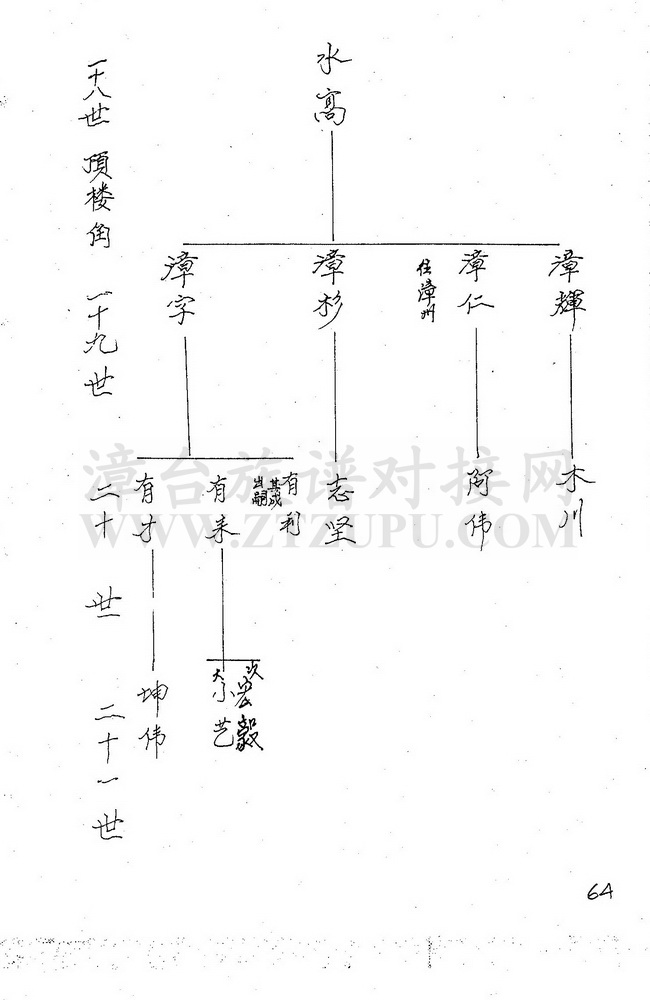 水高
一十八世 頂楼角
漳輝
漳仁
住漳州
漳杉
漳字
一十九世
木川
阿伟
志坚
有利
其成
出嗣
有来
有才
二十世
次 宏毅
大 小艺
坤伟
二十一世
64
漳台族谱对接网
WWW.ZTZUPU.COM